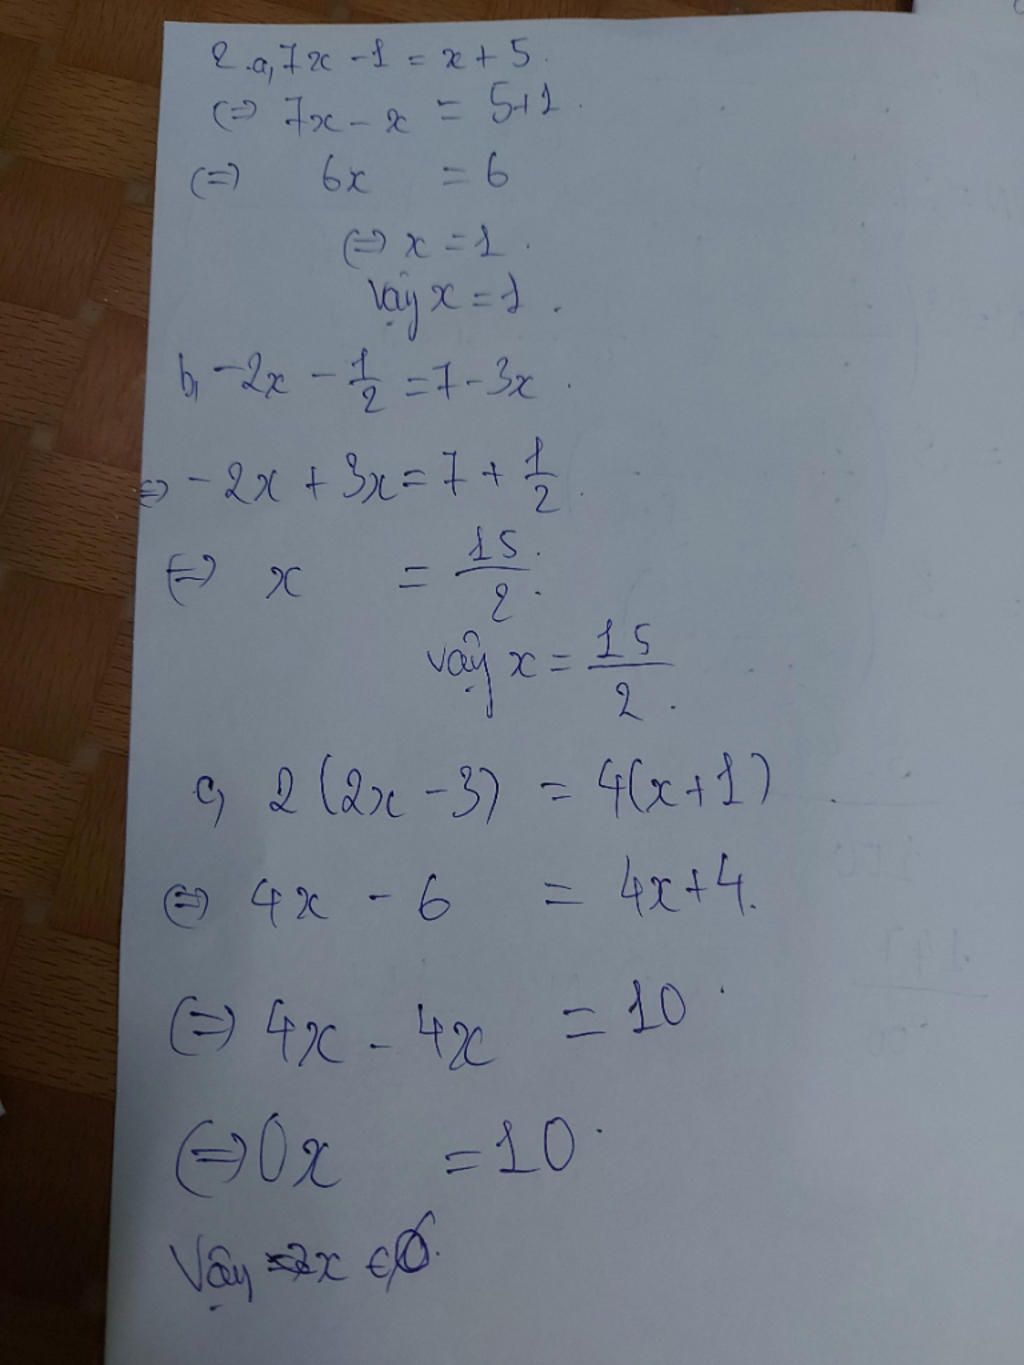 2.a, 7x - 1 = x + 5.
(=) 7x - x = 5+1.
(=) 6x = 6
(=) x = 1.
Vậy x = 1.
b, -2x - 1/2 = 7 - 3x.
=) -2x + 3x = 7 + 1/2.
(=) x = 15/2.
vậy x = 15/2.
c, 2(2x - 3) = 4(x+1)
(=) 4x - 6 = 4x+4.
(=) 4x - 4x = 10
(=) 0x = 10
Vậy x ∈ ∅.